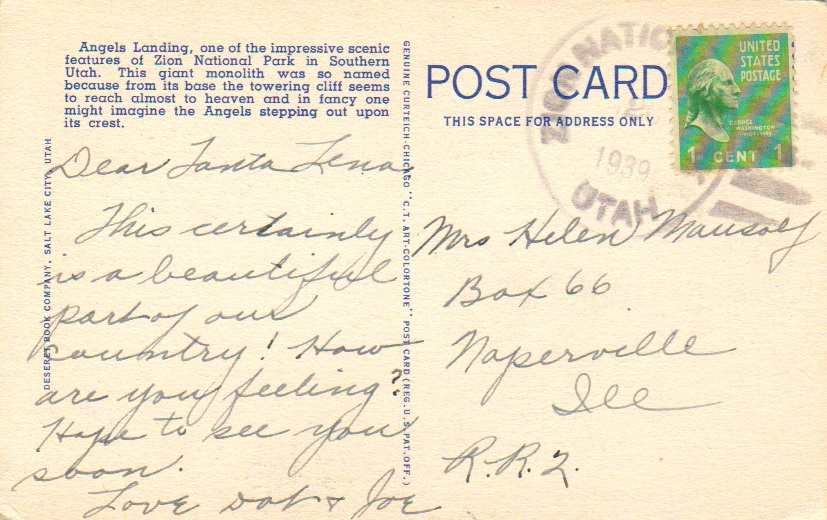 Angels Landing, one of the impressive scenic
features of Zion National Park in Southern
Utah. This giant monolith was so named
because from its base the towering cliff seems
to reach almost to heaven and in fancy one
might imagine the Angels stepping out upon
its crest.
DESERET BOOK COMPANY, SALT LAKE CITY, UTAH
Dear Tanta Lena
This certainly
is a beautiful
part of our
country! How
are you feeling?
Hope to see you
soon.
Love Dot & Joe
GENUINE CURTEICH-CHICAGO "C. T. ART-COLORTONE" POST CARD (REG. U. S. PAT. OFF.)
POST CARD
THIS SPACE FOR ADDRESS ONLY
ZION NATIO
1939
UTAH
UNITED
STATES
POSTAGE
GEORGE
WASHINGTON
1 CENT 1
Mrs Helen Mausolf
Box 66
Naperville
Ill
R.R.2.